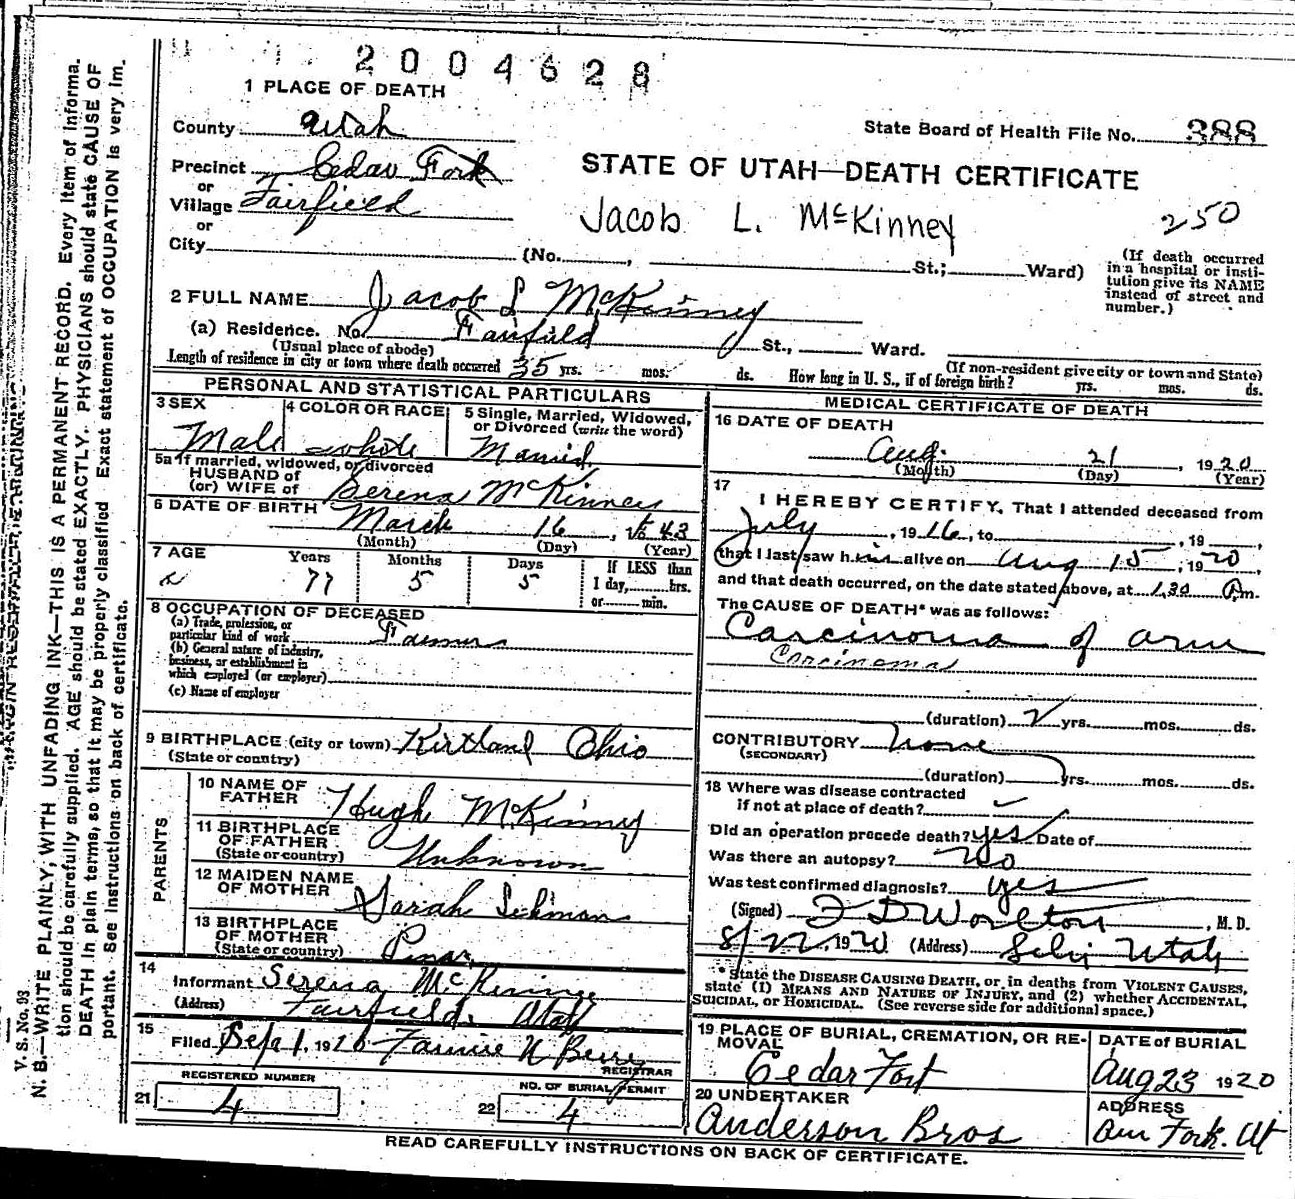 2004628
1 PLACE OF DEATH
County Utah
State Board of Health File No. 388
Precinct Cedar Fort
or
STATE OF UTAH—DEATH CERTIFICATE
Village Fairfield
or
Jacob L. McKinney
250
City (No. , St.; Ward)
(If death occurred in a hospital or insti-
tution give its NAME
instead of street and
number.)
2 FULL NAME Jacob L McKinney
(a) Residence. No. Fairfield St., Ward.
(Usual place of abode)
(If non-resident give city or town and State)
Length of residence in city or town where death occurred 35 yrs. mos. ds. How long in U. S., if of foreign birth? yrs. mos. ds.
PERSONAL AND STATISTICAL PARTICULARS
3 SEX
Male
4 COLOR OR RACE
white
5 Single, Married, Widowed,
or Divorced (write the word)
Married
5a If married, widowed, or divorced
HUSBAND of
(or) WIFE of Serena McKinney
6 DATE OF BIRTH March 16, 1843
(Month) (Day) (Year)
7 AGE Years Months Days If LESS than
77 5 5 1 day, hrs.
or min.
8 OCCUPATION OF DECEASED
(a) Trade, profession, or
particular kind of work Farmer
(b) General nature of industry,
business, or establishment in
which employed (or employer)
(c) Name of employer
9 BIRTHPLACE (city or town) Kirtland Ohio
(State or country)
PARENTS
10 NAME OF
FATHER Hugh McKinney
11 BIRTHPLACE
OF FATHER
(State or country) Unknown
12 MAIDEN NAME
OF MOTHER Sarah
13 BIRTHPLACE
OF MOTHER
(State or country)
14
Informant Serena McKinney
(Address) Fairfield Utah
15
Filed Sep 1, 1920 Fannie N Berry
REGISTRAR
REGISTERED NUMBER
21 4
NO. OF BURIAL PERMIT
22 4
MEDICAL CERTIFICATE OF DEATH
16 DATE OF DEATH
Aug. 21, 1920
(Month) (Day) (Year)
17
I HEREBY CERTIFY, That I attended deceased from
July, 1916, to , 19 ,
that I last saw him alive on Aug 15, 1920,
and that death occurred, on the date stated above, at 1.30 A.m.
The CAUSE OF DEATH* was as follows:
Carcinoma of arm
Carcinoma
(duration) 2 yrs. mos. ds.
CONTRIBUTORY None
(SECONDARY)
(duration) yrs. mos. ds.
18 Where was disease contracted
if not at place of death?
Did an operation precede death? yes Date of
Was there an autopsy? No
Was test confirmed diagnosis? yes
(Signed) F D Worlton, M. D.
8/22, 1920 (Address) Lehi Utah
* State the DISEASE CAUSING DEATH, or, in deaths from VIOLENT CAUSES,
state (1) MEANS AND NATURE OF INJURY, and (2) whether ACCIDENTAL,
SUICIDAL, or HOMICIDAL. (See reverse side for additional space.)
19 PLACE OF BURIAL, CREMATION, OR RE-
MOVAL
Cedar Fort
DATE OF BURIAL
Aug 23 1920
20 UNDERTAKER
Anderson Bros
ADDRESS
Am Fork. Ut
READ CAREFULLY INSTRUCTIONS ON BACK OF CERTIFICATE.
V. S. No. 93
N. B.—WRITE PLAINLY, WITH UNFADING INK—THIS IS A PERMANENT RECORD. Every item of informa-
tion should be carefully supplied. AGE should be stated EXACTLY. PHYSICIANS should state CAUSE OF
DEATH in plain terms, so that it may be properly classified Exact statement of OCCUPATION is very im-
portant. See instructions on back of certificate.